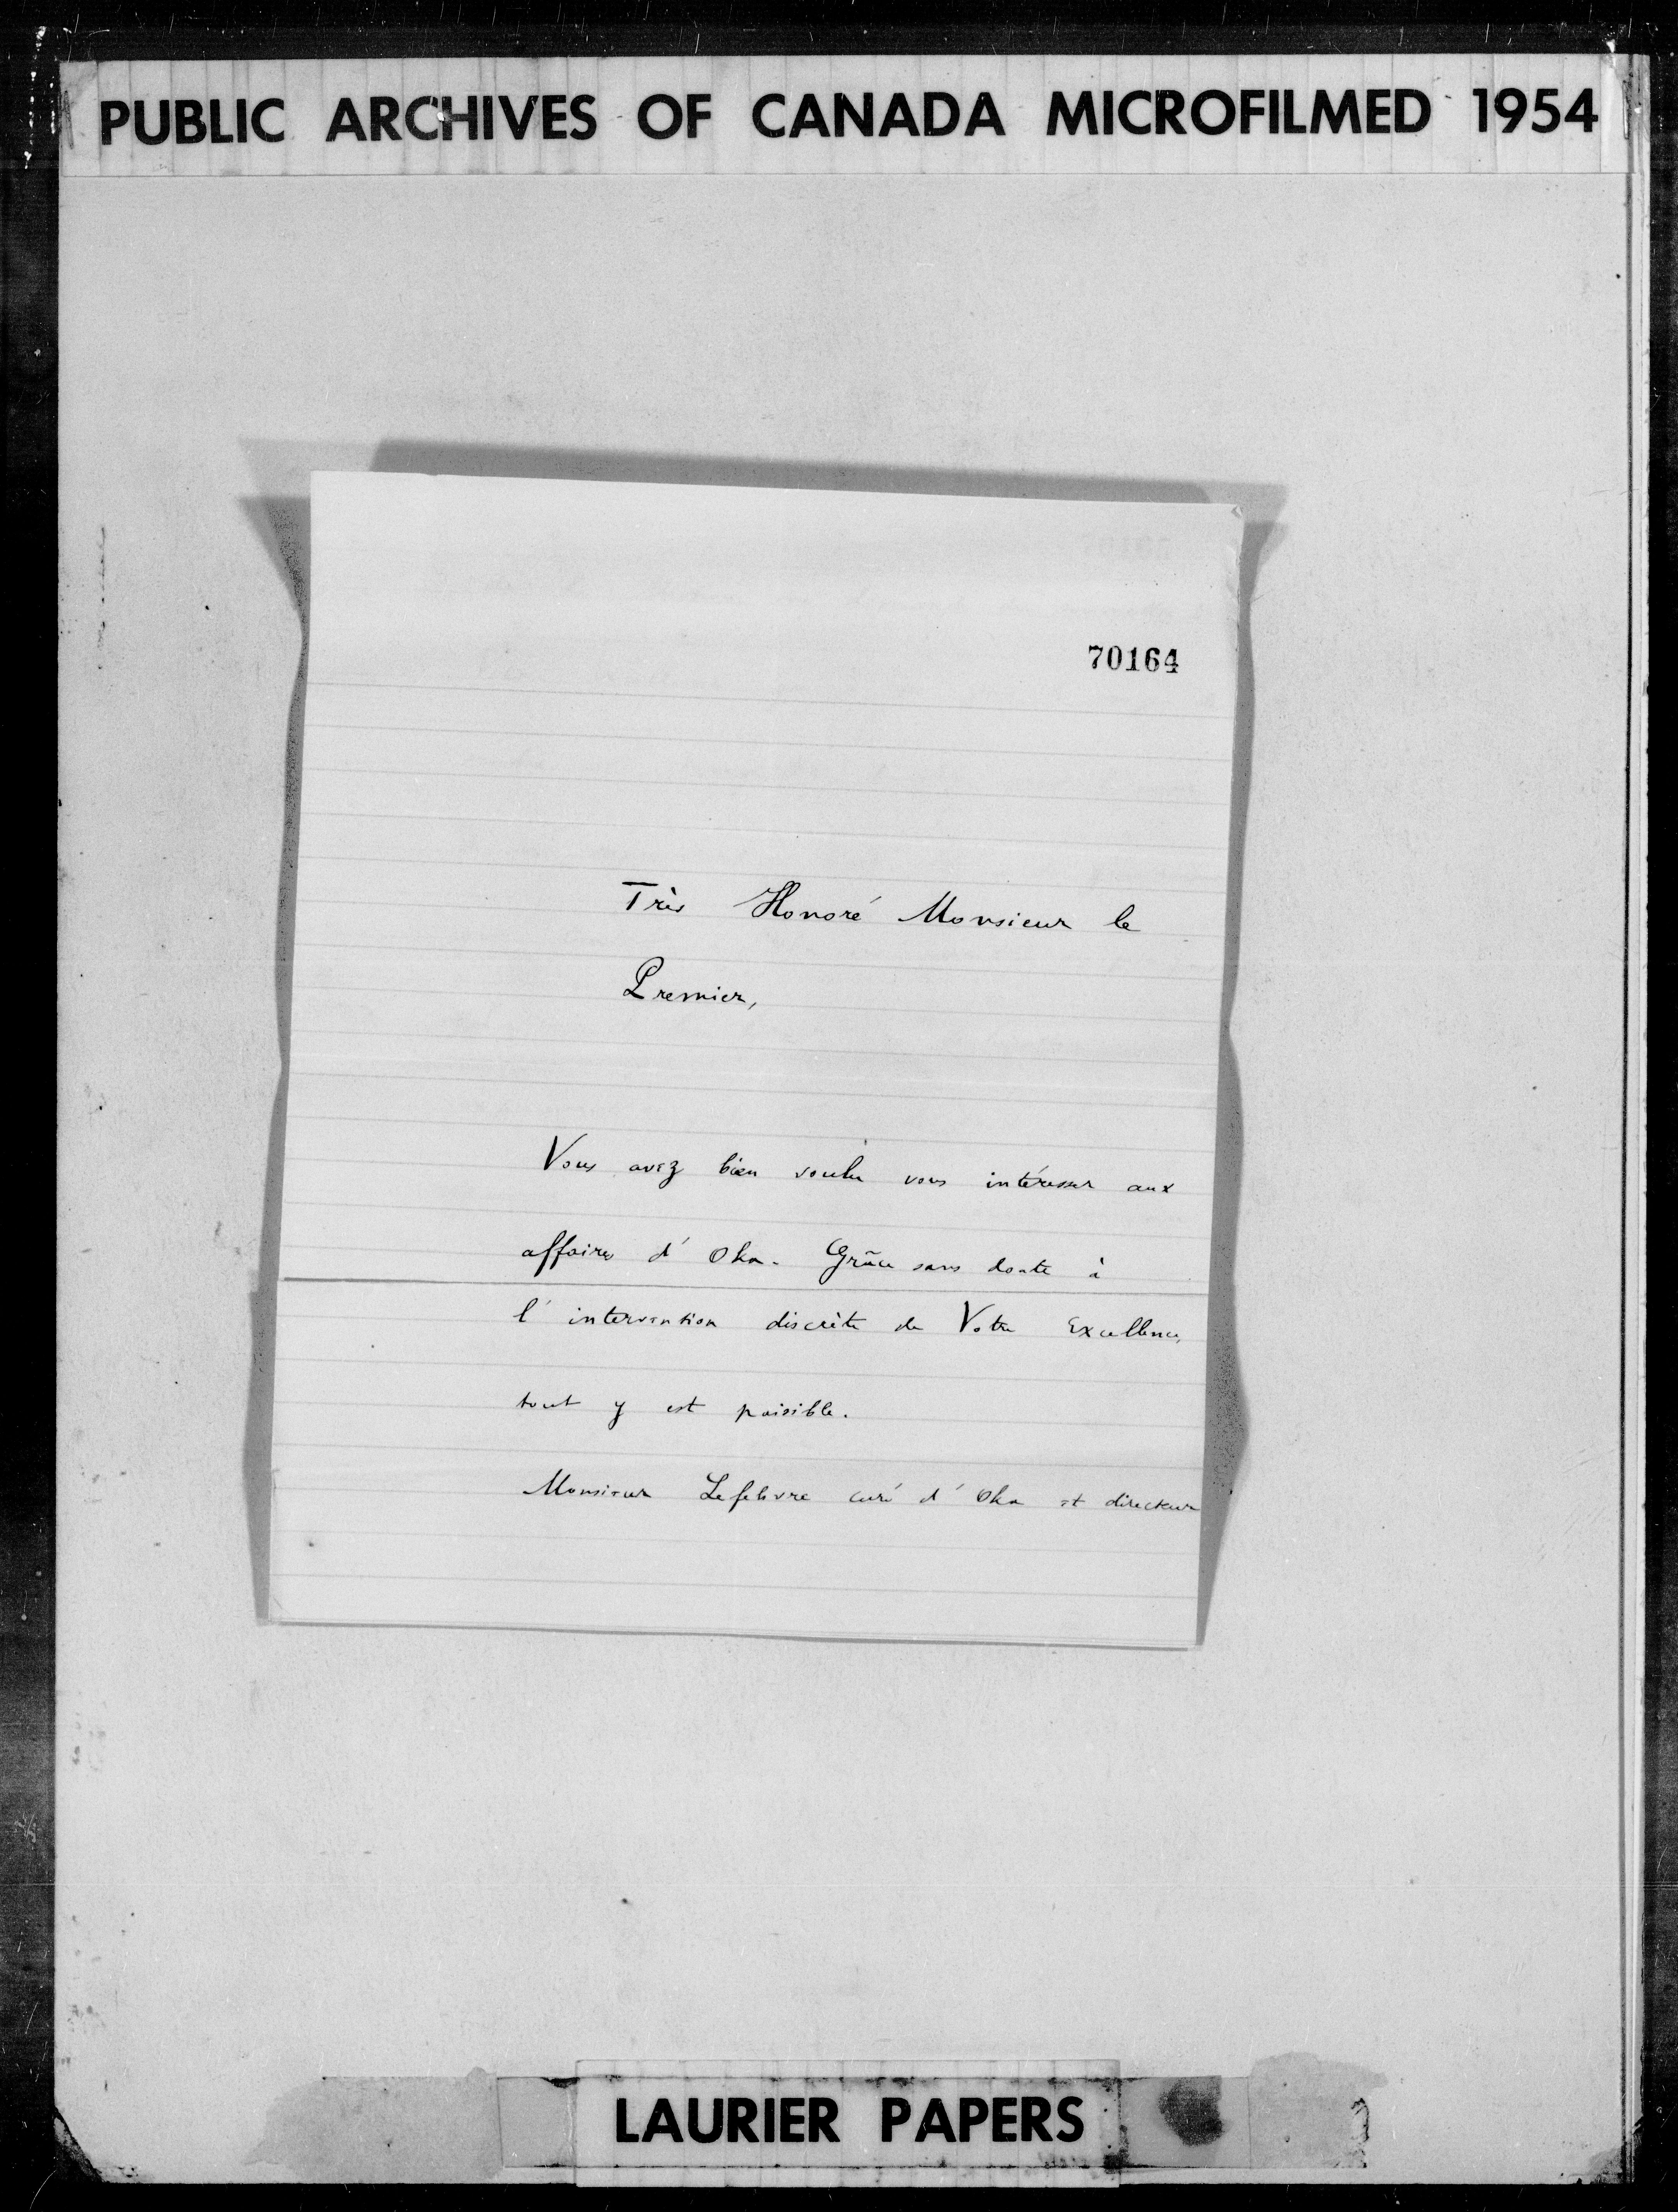 PUBLIC ARCHIVES OF CANADA MICROFILMED 1954
70164
Très Honoré Monsieur le
Premier,
Vous avez bien voulu vous intéresser aux
affaires d'Oka. Grâce sans doute à
l'intervention discrète de Votre Excellence,
tout y est paisible.
Monsieur Lefebvre curé d'Oka et directeur
LAURIER PAPERS